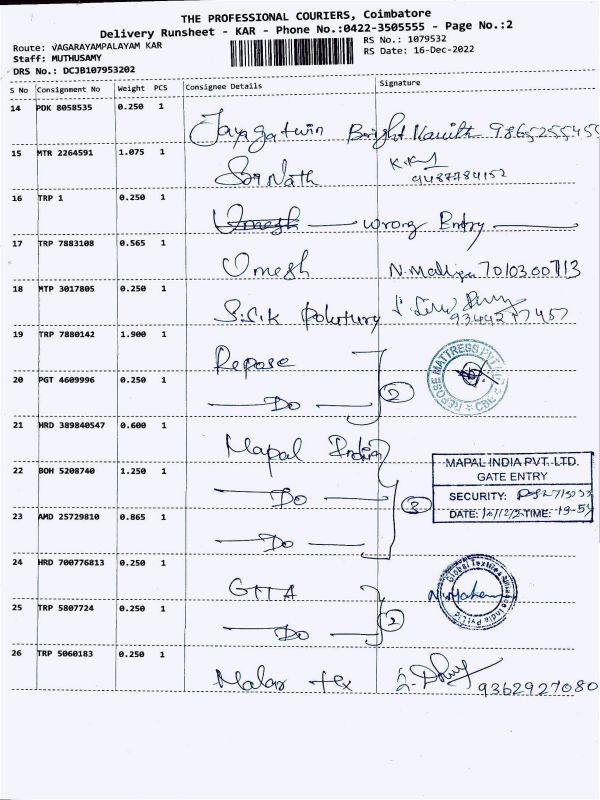 THE PROFESSIONAL COURIERS, Coimbatore
Delivery Runsheet - KAR - Phone No.:0422-3505555 - Page No.:2
Route: VAGARAYAMPALAYAM KAR
RS No.: 1079532
Staff: MUTHUSAMY
RS Date: 16-Dec-2022
DRS No.: DCJB107953202
S No Consignment No Weight PCS Consignee Details Signature
14 PDK 8058535 0.250 1
Bright
15 MTR 2264591 1.075 1
Nath 9487784152
16 TRP 1 0.250 1
Omesh wrong Entry
17 TRP 7883108 0.565 1
Omesh
18 MTP 3017805 0.250 1
S.S.K
19 TRP 7880142 1.900 1
Repose
REPOSE MATTRESS PVT LTD CBE
20 PGT 4609996 0.250 1
Do 2
21 HRD 389840547 0.600 1
Mapal India
22 BOH 5208740 1.250 1
Do 3
MAPAL INDIA PVT. LTD.
GATE ENTRY
SECURITY:
DATE: TIME:
23 AMD 25729810 0.865 1
Do
24 HRD 700776813 0.250 1
Global Textiles Alliance India Pvt Ltd
25 TRP 5807724 0.250 1
Do 2
26 TRP 5060183 0.250 1
Malar tex 9362927080